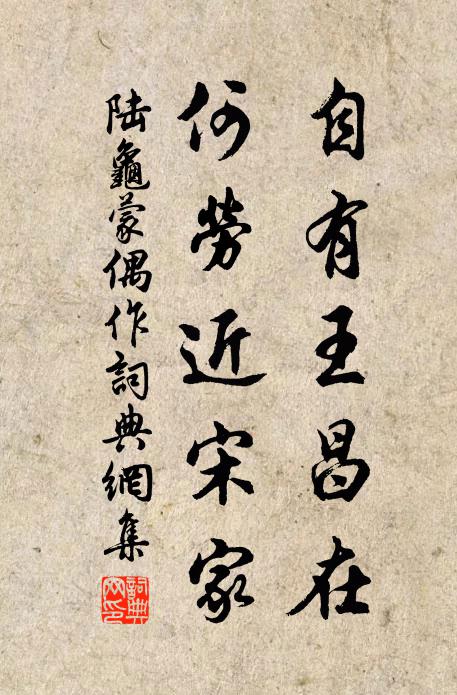 自有王昌在
何勞近宋家
陸龜蒙偶作詞典網集
詞典网印